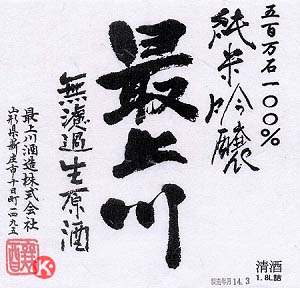 五百万石一〇〇％
純米吟醸
最上川
無濾過生原酒
最上川酒造株式会社
山形県新庄市十日町一四九五
清酒
1.8L詰
製造年月14.3